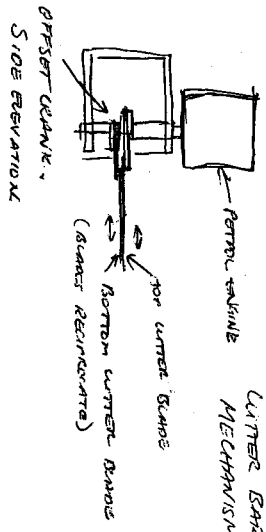 CUTTER BAR
MECHANISM
PETROL ENGINE
TOP CUTTER BLADE
BOTTOM CUTTER BLADE
(BLADES RECIPROCATE)
OFFSET CRANK.
SIDE ELEVATION